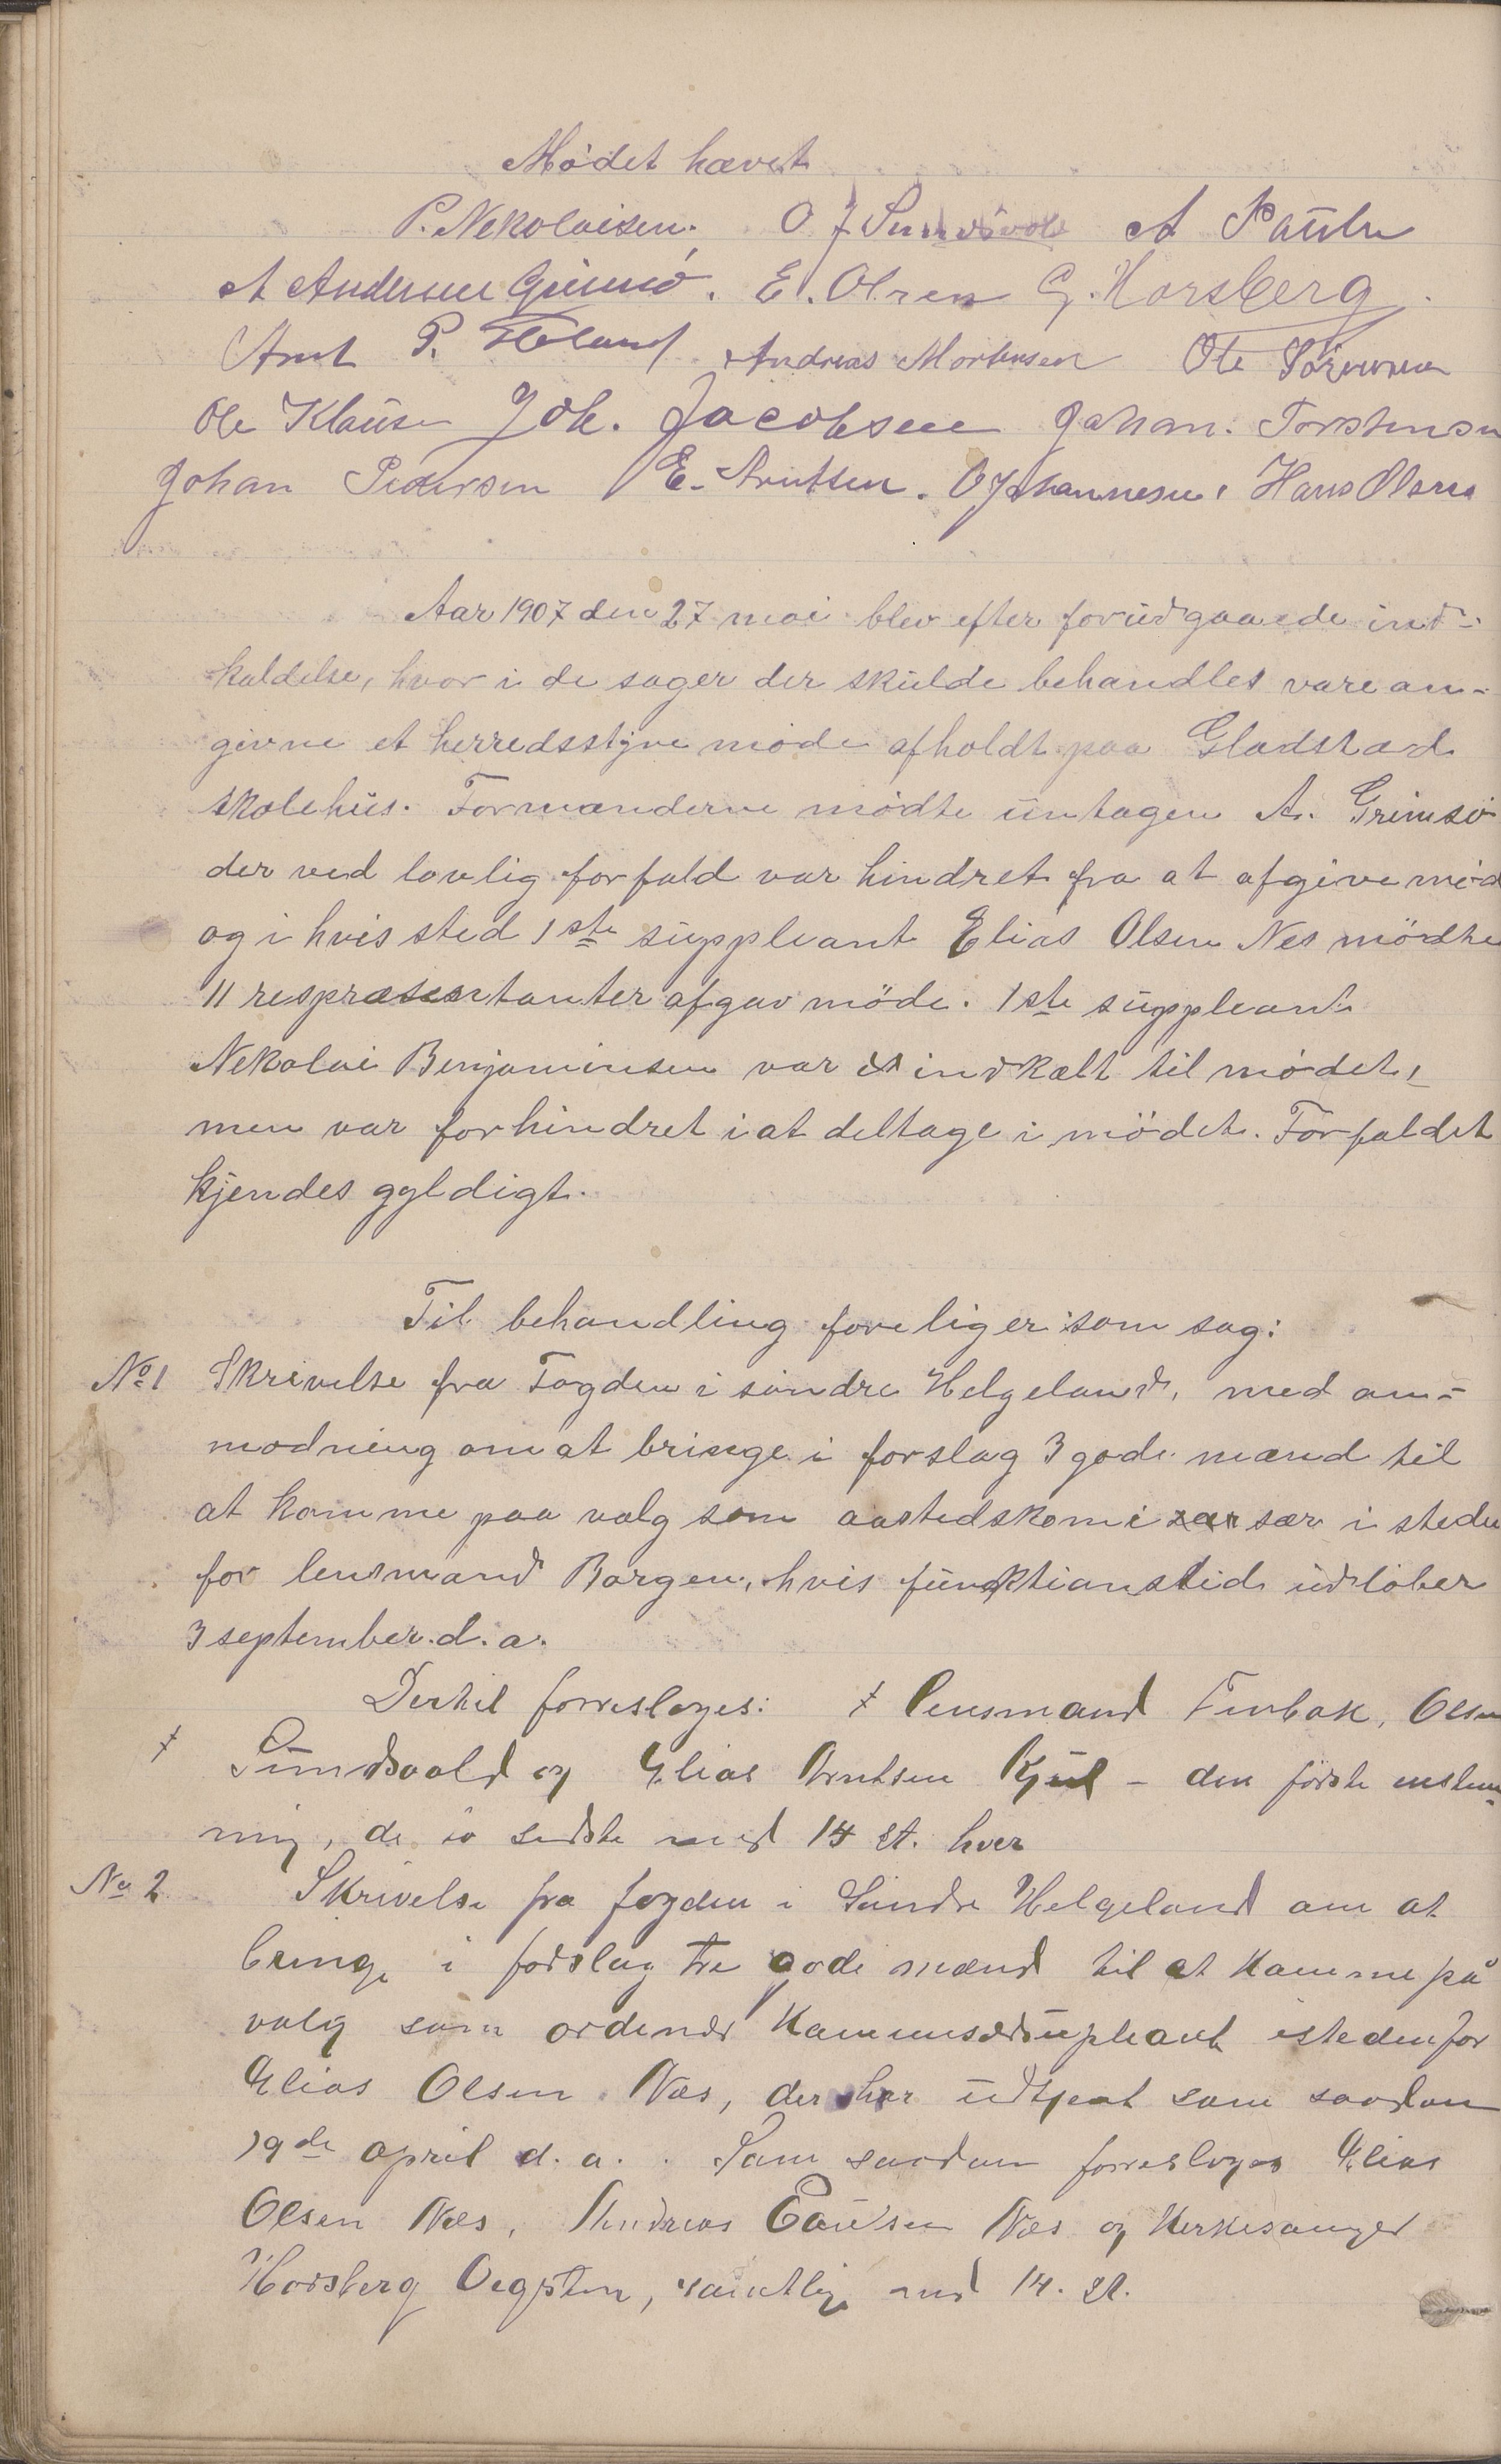 Mødet hævet
P. Nekolaisen. O J Sundsvold A Paulsen
A Andersen Grimsø. E. Olsen G. Horsberg.
Arnt P. Floland Andreas Mortensen Ole Sørensen
Ole Klausen Joh. Jacobsen Johan. Torstensen
Johan Pedersen E. Arntsen. O Johannesen, Hans Olsen
Aar 1907 den 27 mai blev efter forudgaaede ind-
kaldelse, hvor i de sager der skulde behandles vare an-
givne et herredsstyre møde afholdt paa Gladstad
skolehus. Formænderne mødte untagen A. Grimsø
der ved lovlig forfald var hindret fra at afgive mød
og i hvis sted 1ste suppleant Elias Olsen Nes mødte
11 respræsentanter afgav møde. 1ste suppleant
Nekolai Benjaminsen var indkalt til mødet,
men var forhindret i at deltage i mødet. Forfaldet
kjendes gyldigt.
Til behandling foreligger som sag:
No 1 Skrivelse fra Fogden i søndre Helgeland, med an-
modning om at bringe i forslag 3 gode mænd til
at komme paa valg som aastedskomi sær i steden
for lensmand Borgen, hvis funktionstid udløber
3 september. d. a.
Dertil foresloges: ⨍ lensmand Finbak, Olsen
⨍ Sundsvold og Elias Arntsen Kjul - den første enstem-
mig, de to sidste med 14 st. hver
No 2 Skrivelse fra fogden i Søndre Helgeland om at
bringe i forslag tre gode mænd til at komme på
valg som ordenær istedenfor
Elias Olsen Næs, der har udtjent som saadan
19de april d. a. . Som saadan foresloges Elias
Olsen Næs, Andreas Paulsen Næs og Kirkesanger
Horsberg Vegsten, samtlige med 14. st.